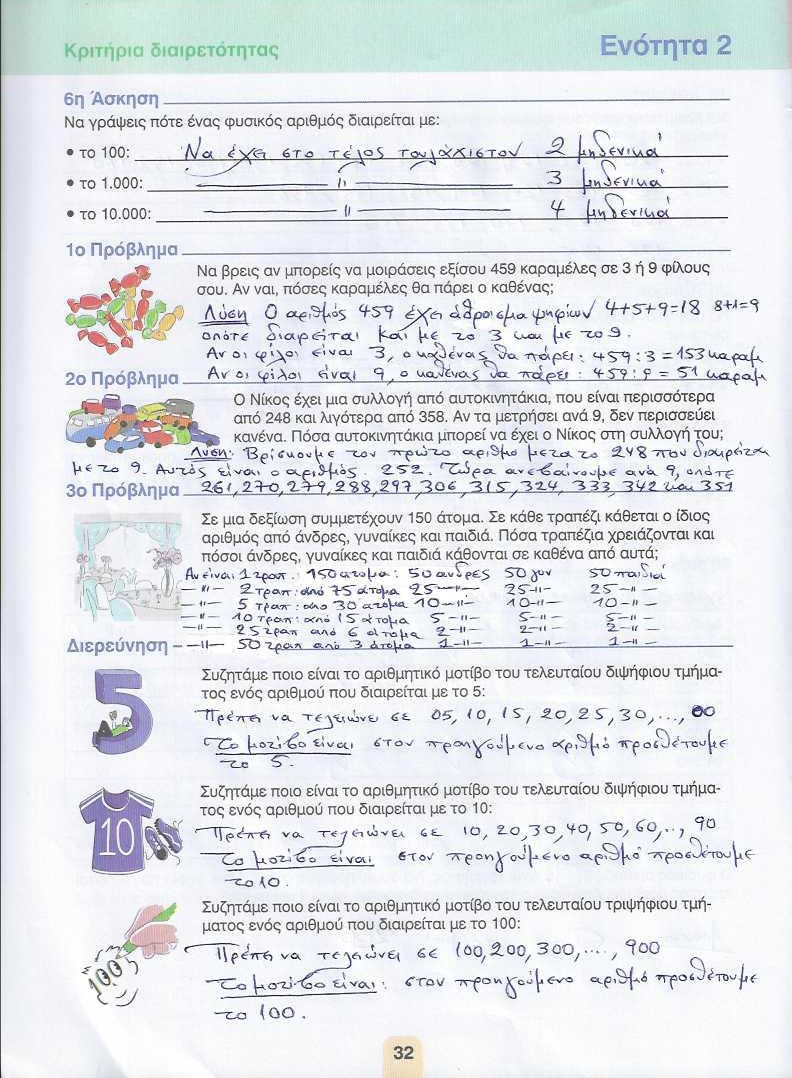 Κριτήρια διαιρετότητας
Ενότητα 2
6η Άσκηση
Να γράψεις πότε ένας φυσικός αριθμός διαιρείται με:
• το 100: Να έχει στο τέλος τουλάχιστον 2 μηδενικά
• το 1.000: —— 〃 —— 3 μηδενικά
• το 10.000: —— 〃 —— 4 μηδενικά
1ο Πρόβλημα
Να βρεις αν μπορείς να μοιράσεις εξίσου 459 καραμέλες σε 3 ή 9 φίλους
σου. Αν ναι, πόσες καραμέλες θα πάρει ο καθένας;
Λύση Ο αριθμός 459 έχει άθροισμα ψηφίων 4+5+9=18 8+1=9
οπότε διαιρείται και με το 3 και με το 9.
Αν οι φίλοι είναι 3, ο καθένας θα πάρει: 459:3=153 καραμ
Αν οι φίλοι είναι 9, ο καθένας θα πάρει: 459:9=51 καραμ
2ο Πρόβλημα
Ο Νίκος έχει μια συλλογή από αυτοκινητάκια, που είναι περισσότερα
από 248 και λιγότερα από 358. Αν τα μετρήσει ανά 9, δεν περισσεύει
κανένα. Πόσα αυτοκινητάκια μπορεί να έχει ο Νίκος στη συλλογή του;
Λύση: Βρίσκουμε τον πρώτο αριθμό μετά το 248 που διαιρείται
με το 9. Αυτός είναι ο αριθμός. 252. Τώρα ανεβαίνουμε ανά 9, οπότε
261, 270, 279, 288, 297, 306, 315, 324, 333, 342 και 351
3ο Πρόβλημα
Σε μια δεξίωση συμμετέχουν 150 άτομα. Σε κάθε τραπέζι κάθεται ο ίδιος
αριθμός από άνδρες, γυναίκες και παιδιά. Πόσα τραπέζια χρειάζονται και
πόσοι άνδρες, γυναίκες και παιδιά κάθονται σε καθένα από αυτά;
Αν είναι 1 τραπ.: 150 άτομα: 50 άνδρες 50 γυν 50 παιδιά
—〃— 2 τραπ: από 75 άτομα 25 —〃— 25 —〃— 25 —〃—
—〃— 5 τραπ: από 30 άτομα 10 —〃— 10 —〃— 10 —〃—
—〃— 10 τραπ: από 15 άτομα 5 —〃— 5 —〃— 5 —〃—
—〃— 25 τραπ από 6 άτομα 2 —〃— 2 —〃— 2 —〃—
—〃— 50 τραπ από 3 άτομα 1 —〃— 1 —〃— 1 —〃—
Διερεύνηση
Συζητάμε ποιο είναι το αριθμητικό μοτίβο του τελευταίου διψήφιου τμήμα-
τος ενός αριθμού που διαιρείται με το 5:
5
Πρέπει να τελειώνει σε 05, 10, 15, 20, 25, 30, ..., 00
Το μοτίβο είναι στον προηγούμενο αριθμό προσθέτουμε
το 5.
Συζητάμε ποιο είναι το αριθμητικό μοτίβο του τελευταίου διψήφιου τμήμα-
τος ενός αριθμού που διαιρείται με το 10:
10
Πρέπει να τελειώνει σε 10, 20, 30, 40, 50, 60, .., 90
Το μοτίβο είναι στον προηγούμενο αριθμό προσθέτουμε
το 10.
Συζητάμε ποιο είναι το αριθμητικό μοτίβο του τελευταίου τριψήφιου τμή-
ματος ενός αριθμού που διαιρείται με το 100:
100
Πρέπει να τελειώνει σε 100, 200, 300, ...., 900
Το μοτίβο είναι: στον προηγούμενο αριθμό προσθέτουμε
το 100.
32